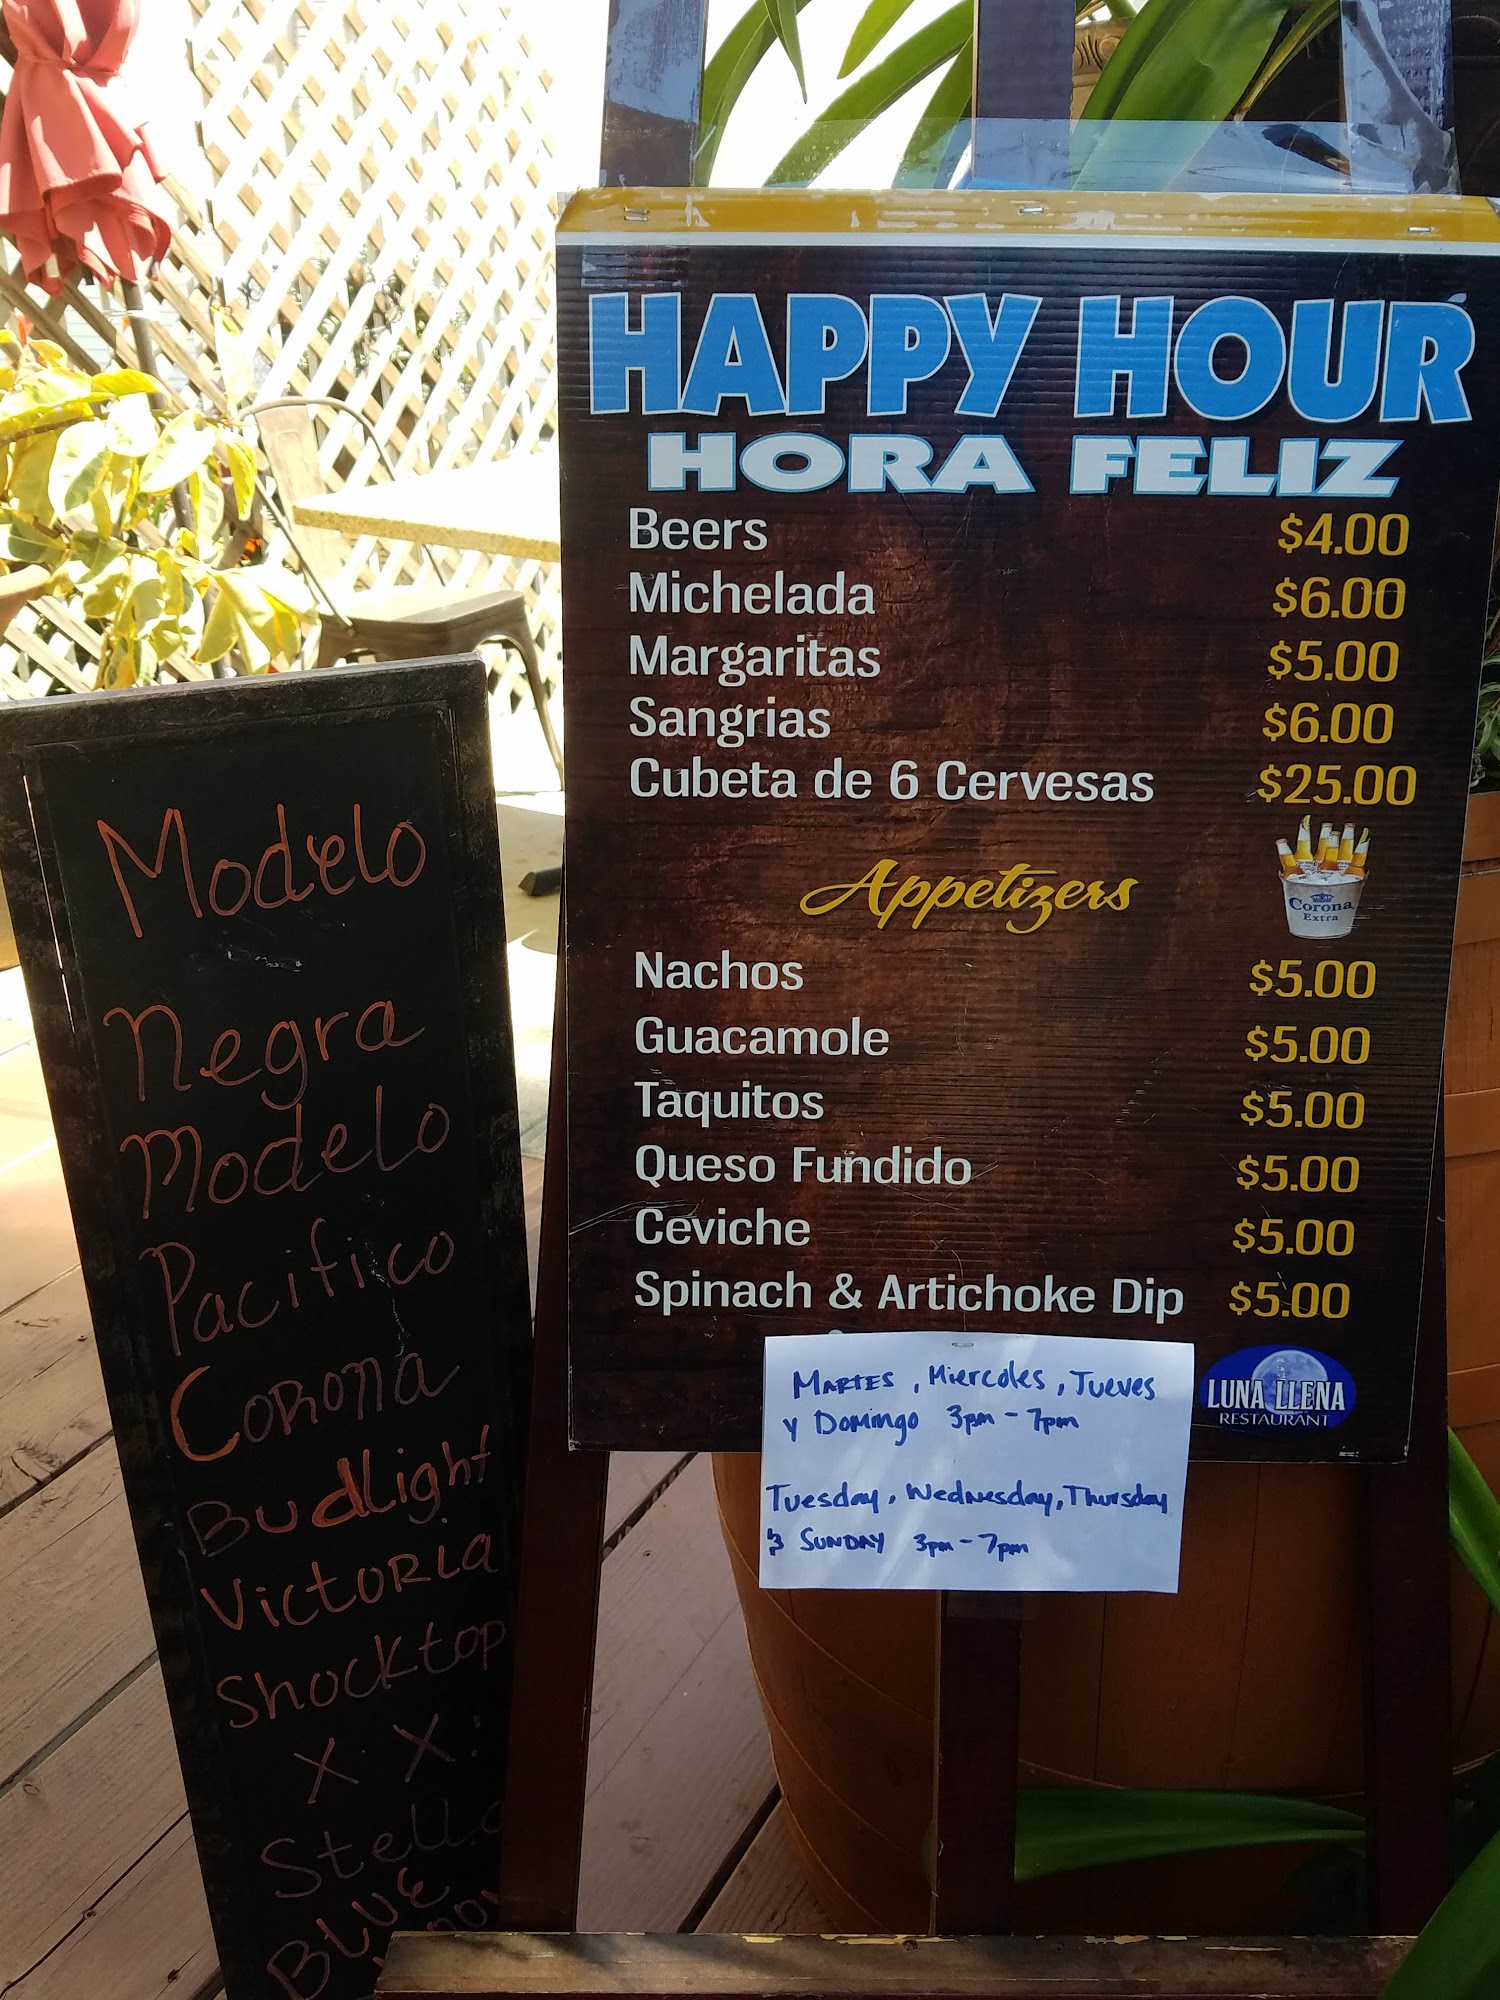 Modelo
Negra
Modelo
Pacifico
Corona
BudLight
Victoria
Shocktop
X X
Stella
BLUE
HAPPY HOUR
HORA FELIZ
Beers $4.00
Michelada $6.00
Margaritas $5.00
Sangrias $6.00
Cubeta de 6 Cervesas $25.00
Corona
Extra
Appetizers
Nachos $5.00
Guacamole $5.00
Taquitos $5.00
Queso Fundido $5.00
Ceviche $5.00
Spinach & Artichoke Dip $5.00
LUNA LLENA
RESTAURANT
MARTES, Miercoles, Jueves
y Domingo 3pm - 7pm
Tuesday, Wednesday, Thursday
& SUNDAY 3pm - 7pm